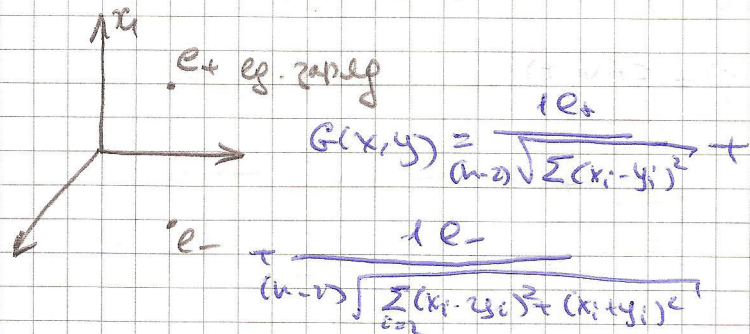 x₁
e₊ ед. заряд
G(x,y) = 1e₊ / (n-2)√Σ(xᵢ-yᵢ)² +
e₋
+ 1e₋ / (n-2)√Σᵢ₌₂(xᵢ-yᵢ)²+(xᵢ+yᵢ)²